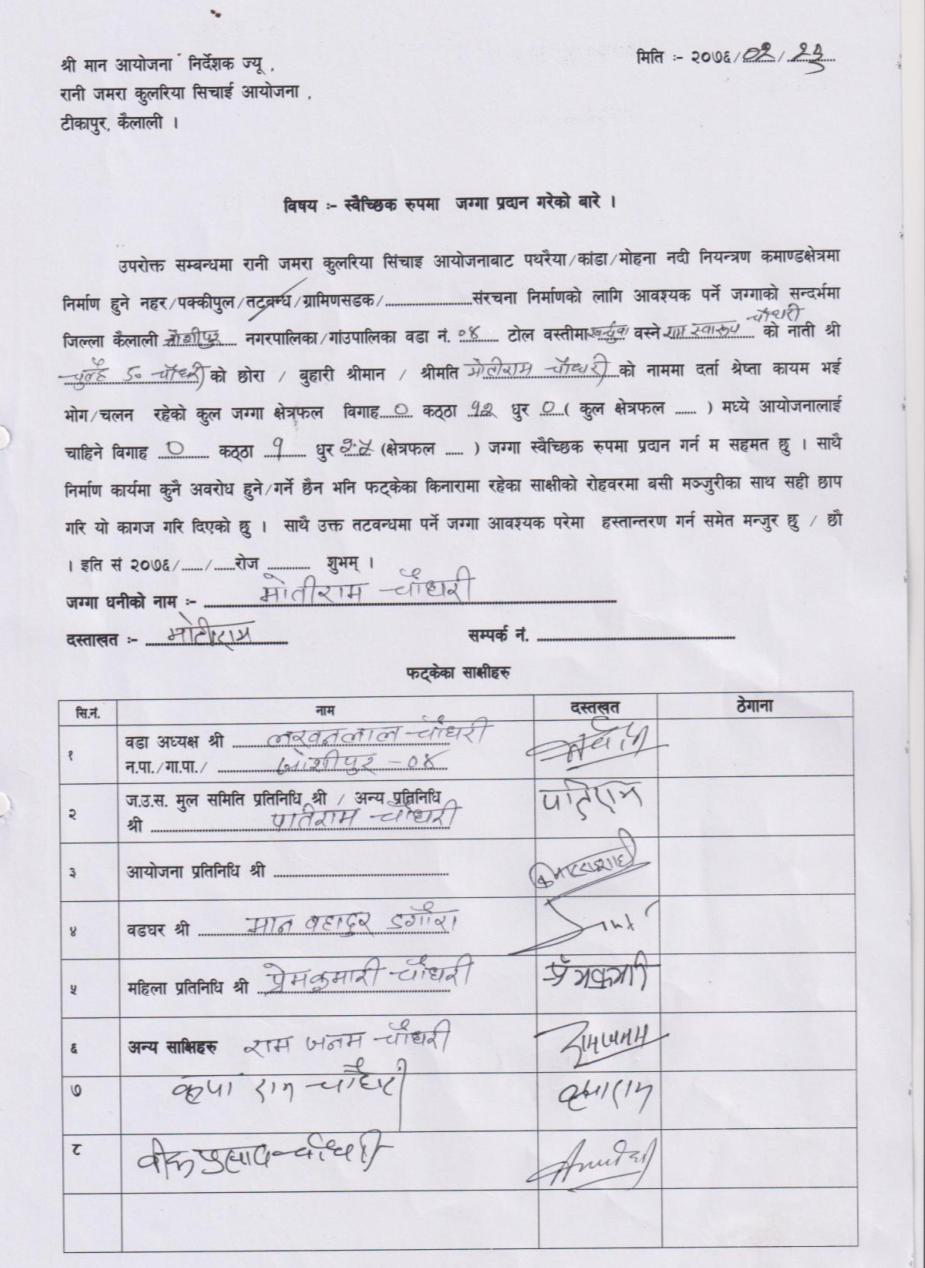 श्री मान आयोजना निर्देशक ज्यू ,
मिति :- २०७६/०२/
रानी जमरा कुलरिया सिचाई आयोजना ,
टीकापुर, कैलाली ।
विषय :- स्वैच्छिक रुपमा जग्गा प्रदान गरेको बारे ।
उपरोक्त सम्बन्धमा रानी जमरा कुलरिया सिंचाइ आयोजनाबाट पथरैया/कांडा/मोहना नदी नियन्त्रण कमाण्डक्षेत्रमा
निर्माण हुने नहर/पक्कीपुल/तटबन्ध/ग्रामिणसडक/........................संरचना निर्माणको लागि आवश्यक पर्ने जग्गाको सन्दर्भमा
जिल्ला कैलाली जोशीपुर नगरपालिका/गांउपालिका वडा नं. ०४ टोल वस्तीमा वस्ने चौधरी को नाती श्री
चौधरी को छोरा / बुहारी श्रीमान / श्रीमति मोतीराम चौधरी को नाममा दर्ता श्रेष्ता कायम भई
भोग/चलन रहेको कुल जग्गा क्षेत्रफल विगाह ० कठ्ठा १२ धुर ० ( कुल क्षेत्रफल ...... ) मध्ये आयोजनालाई
चाहिने विगाह ० कठ्ठा १ धुर (क्षेत्रफल ..... ) जग्गा स्वैच्छिक रुपमा प्रदान गर्न म सहमत छु । साथै
निर्माण कार्यमा कुनै अवरोध हुने/गर्ने छैन भनि फट्केका किनारामा रहेका साक्षीको रोहवरमा बसी मञ्जुरीका साथ सही छाप
गरि यो कागज गरि दिएको छु । साथै उक्त तटवन्धमा पर्ने जग्गा आवश्यक परेमा हस्तान्तरण गर्न समेत मन्जुर छु / छौ
। इति सं २०७६/....../......रोज ............ शुभम् ।
जग्गा धनीको नाम :- मोतीराम चौधरी
दस्ताखत :- मोतीराम सम्पर्क नं. ..............................
फट्केका साक्षीहरु
सि.नं. नाम दस्तखत ठेगाना
१ वडा अध्यक्ष श्री लखनलाल चौधरी
न.पा./गा.पा./ जोशीपुर -०४
२ ज.उ.स. मुल समिति प्रतिनिधि श्री / अन्य प्रतिनिधि
श्री पातीराम चौधरी पातीराम
३ आयोजना प्रतिनिधि श्री ..............................
४ वडघर श्री मान बहादुर डगौरा
५ महिला प्रतिनिधि श्री प्रेमकुमारी चौधरी प्रेमकुमारी
६ अन्य साक्षिहरु राम जनम चौधरी रामजनम
७ कृपा राम चौधरी कृपाराम
८ चौधरी